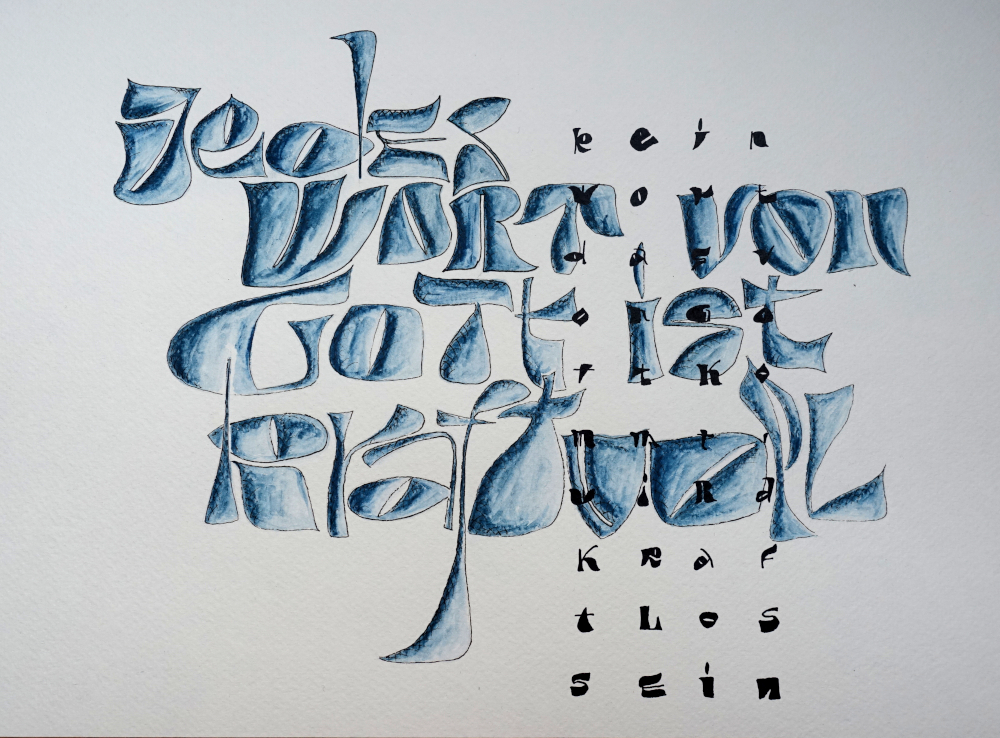 Jedes
WORT von
GoTt ist
KRaftvoLL
k e i n
w o r t
d a s v
o n g o
t t K o
m m t ,
w i R d
K R a f
t L o s
s e i n